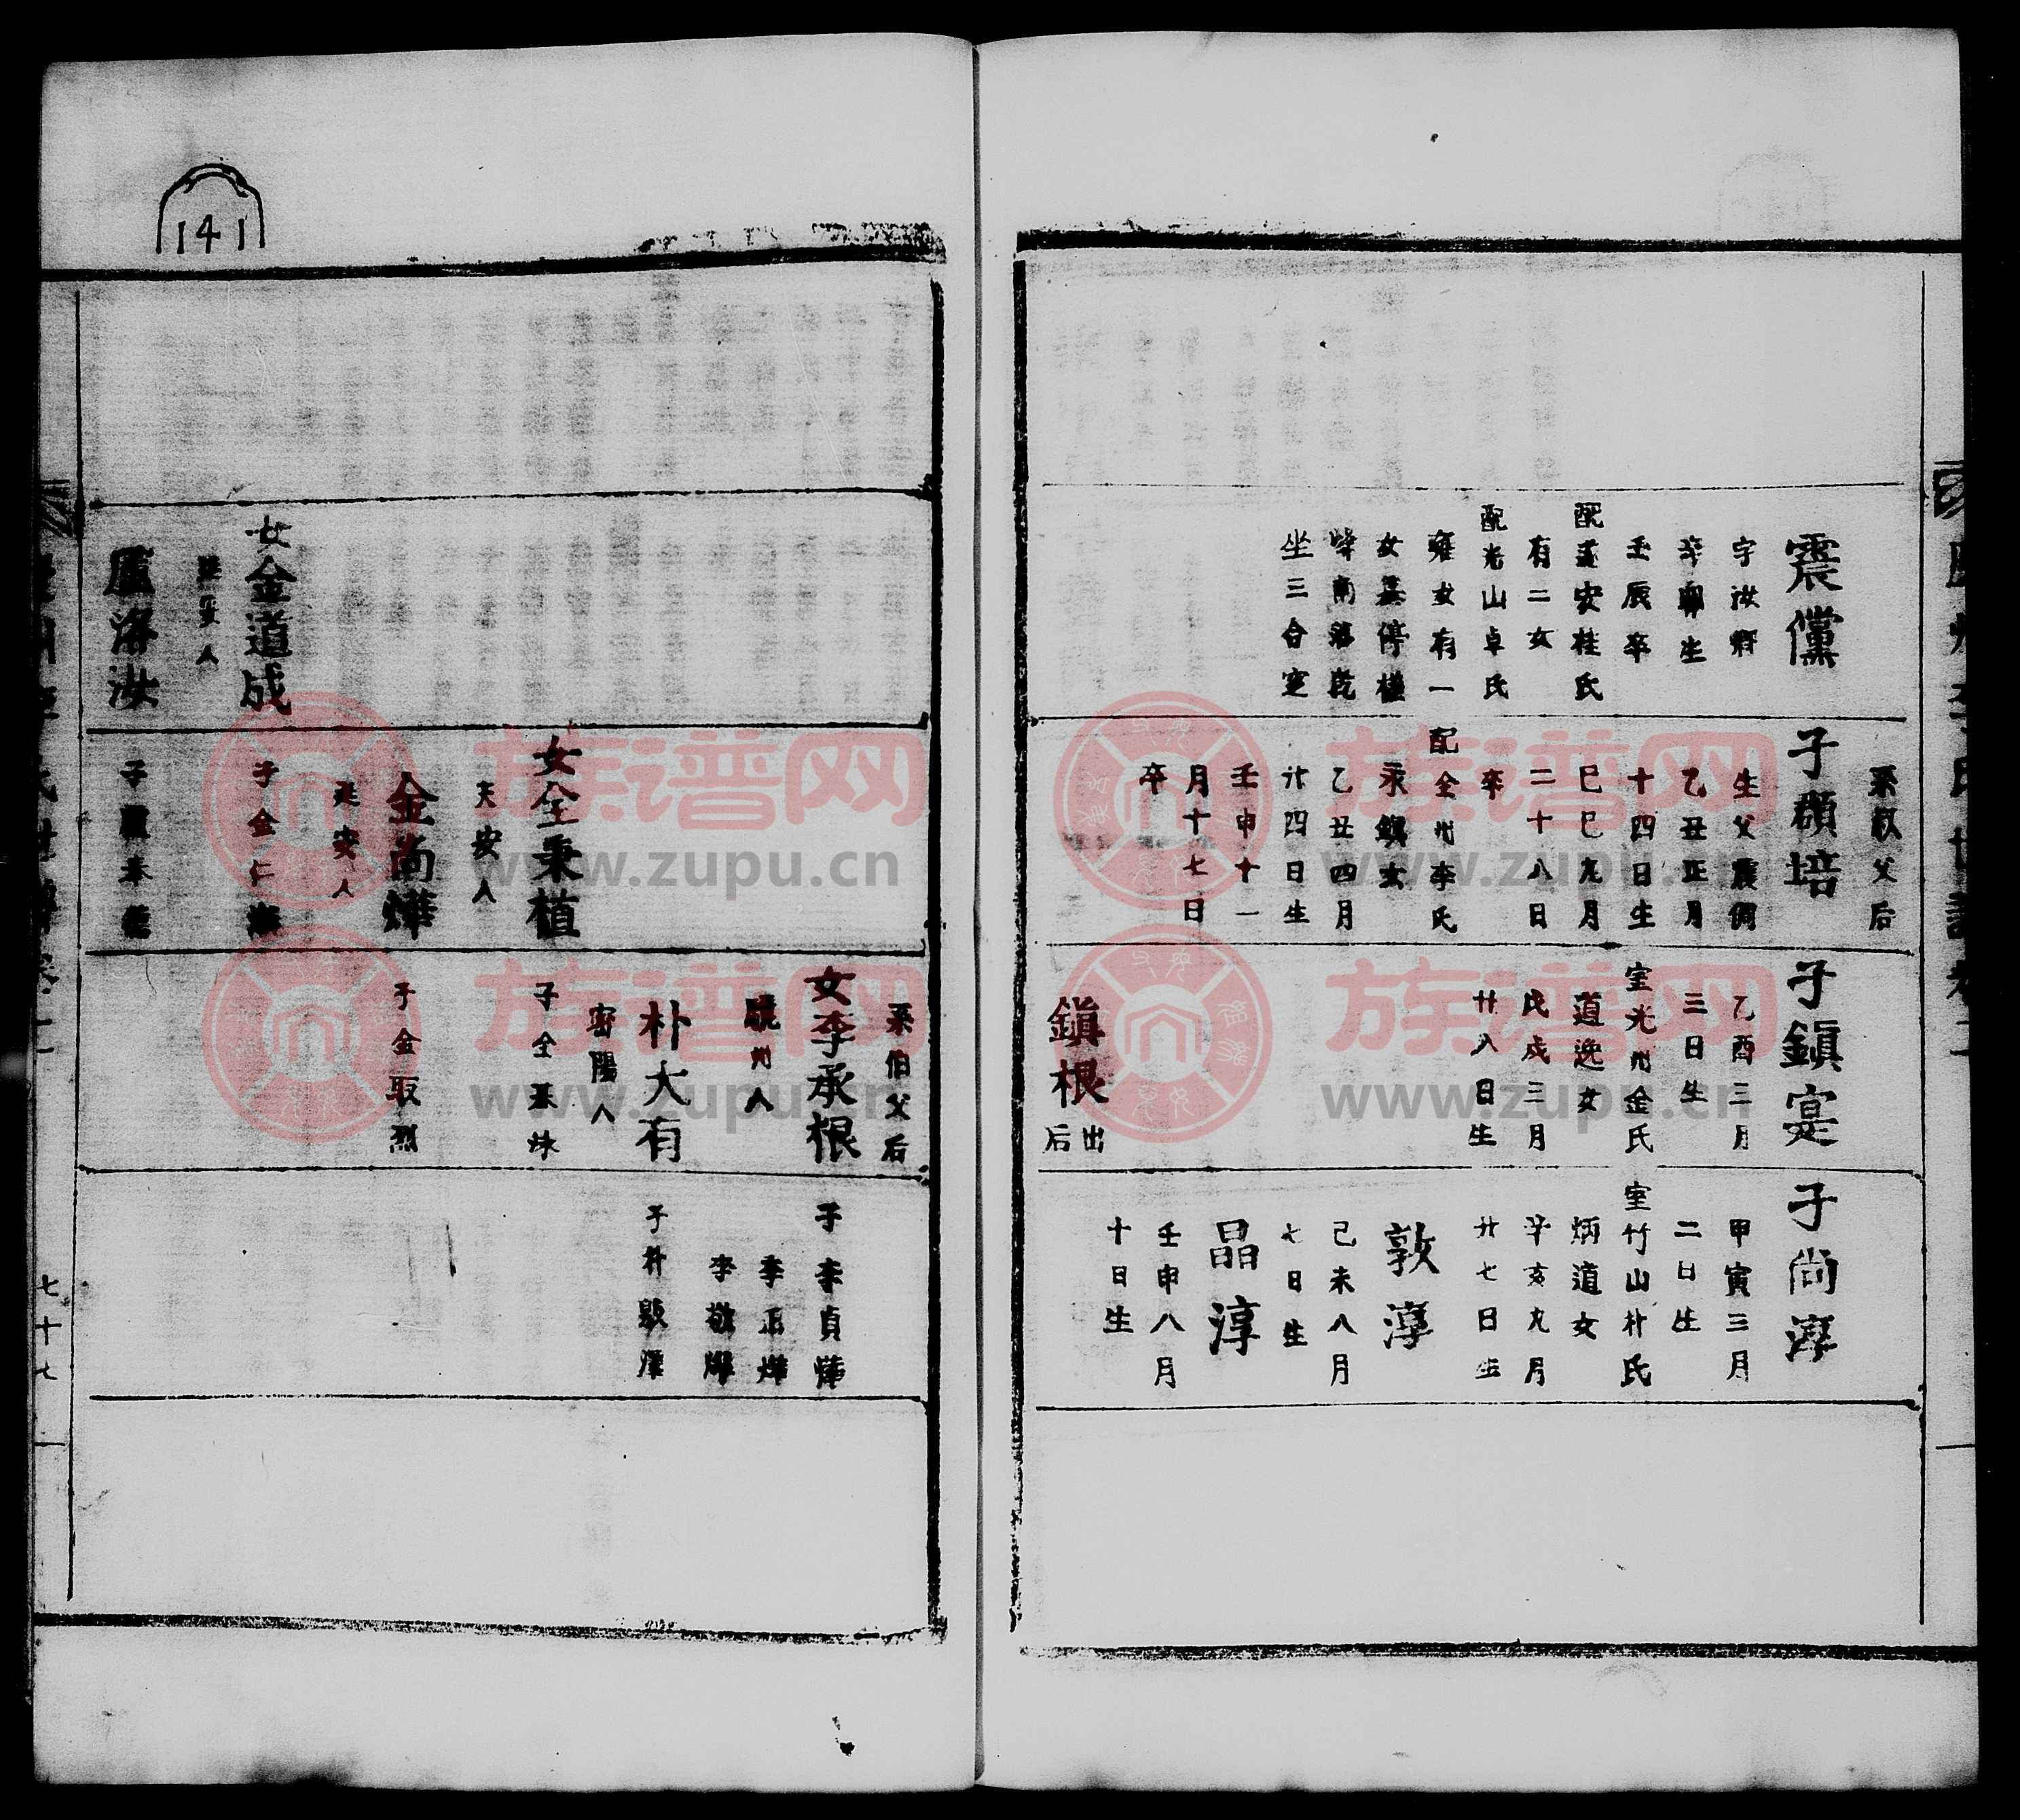 震儻
字汝
辛卯生
壬辰卒
配遂安桂氏
有二女
配光山卓氏
雍女有一
女墓停
南
坐三合窆
系叔父后
子顀培
生父震倜
乙丑正月
十四日生
己巳九月
二十八日
卒
配全州李氏
永鎭女
乙丑四月
廿四日生
壬申十一
月十七日
卒
子鎭寔
乙酉三月
三日生
室光州金氏
道逸女
戊戌三月
廿八日生
鎭根
出后
子尙淳
甲寅三月
二日生
室竹山朴氏
炳道女
辛亥九月
廿七日生
敦淳
己未八月
七日生
晶淳
壬申八月
十日生
141
女金道成
延安人
盧洛汝
女全秉植
天安人
金尙燁
延安人
子金仁
子盧奉
系伯父后
女李承根
州人
朴大有
密陽人
子全
子金取烈
子李貞
李正燁
李敬燁
子朴
七十七
族谱网
www.zupu.cn
族谱网
www.zupu.cn
族谱网
www.zupu.cn
族谱网
www.zupu.cn